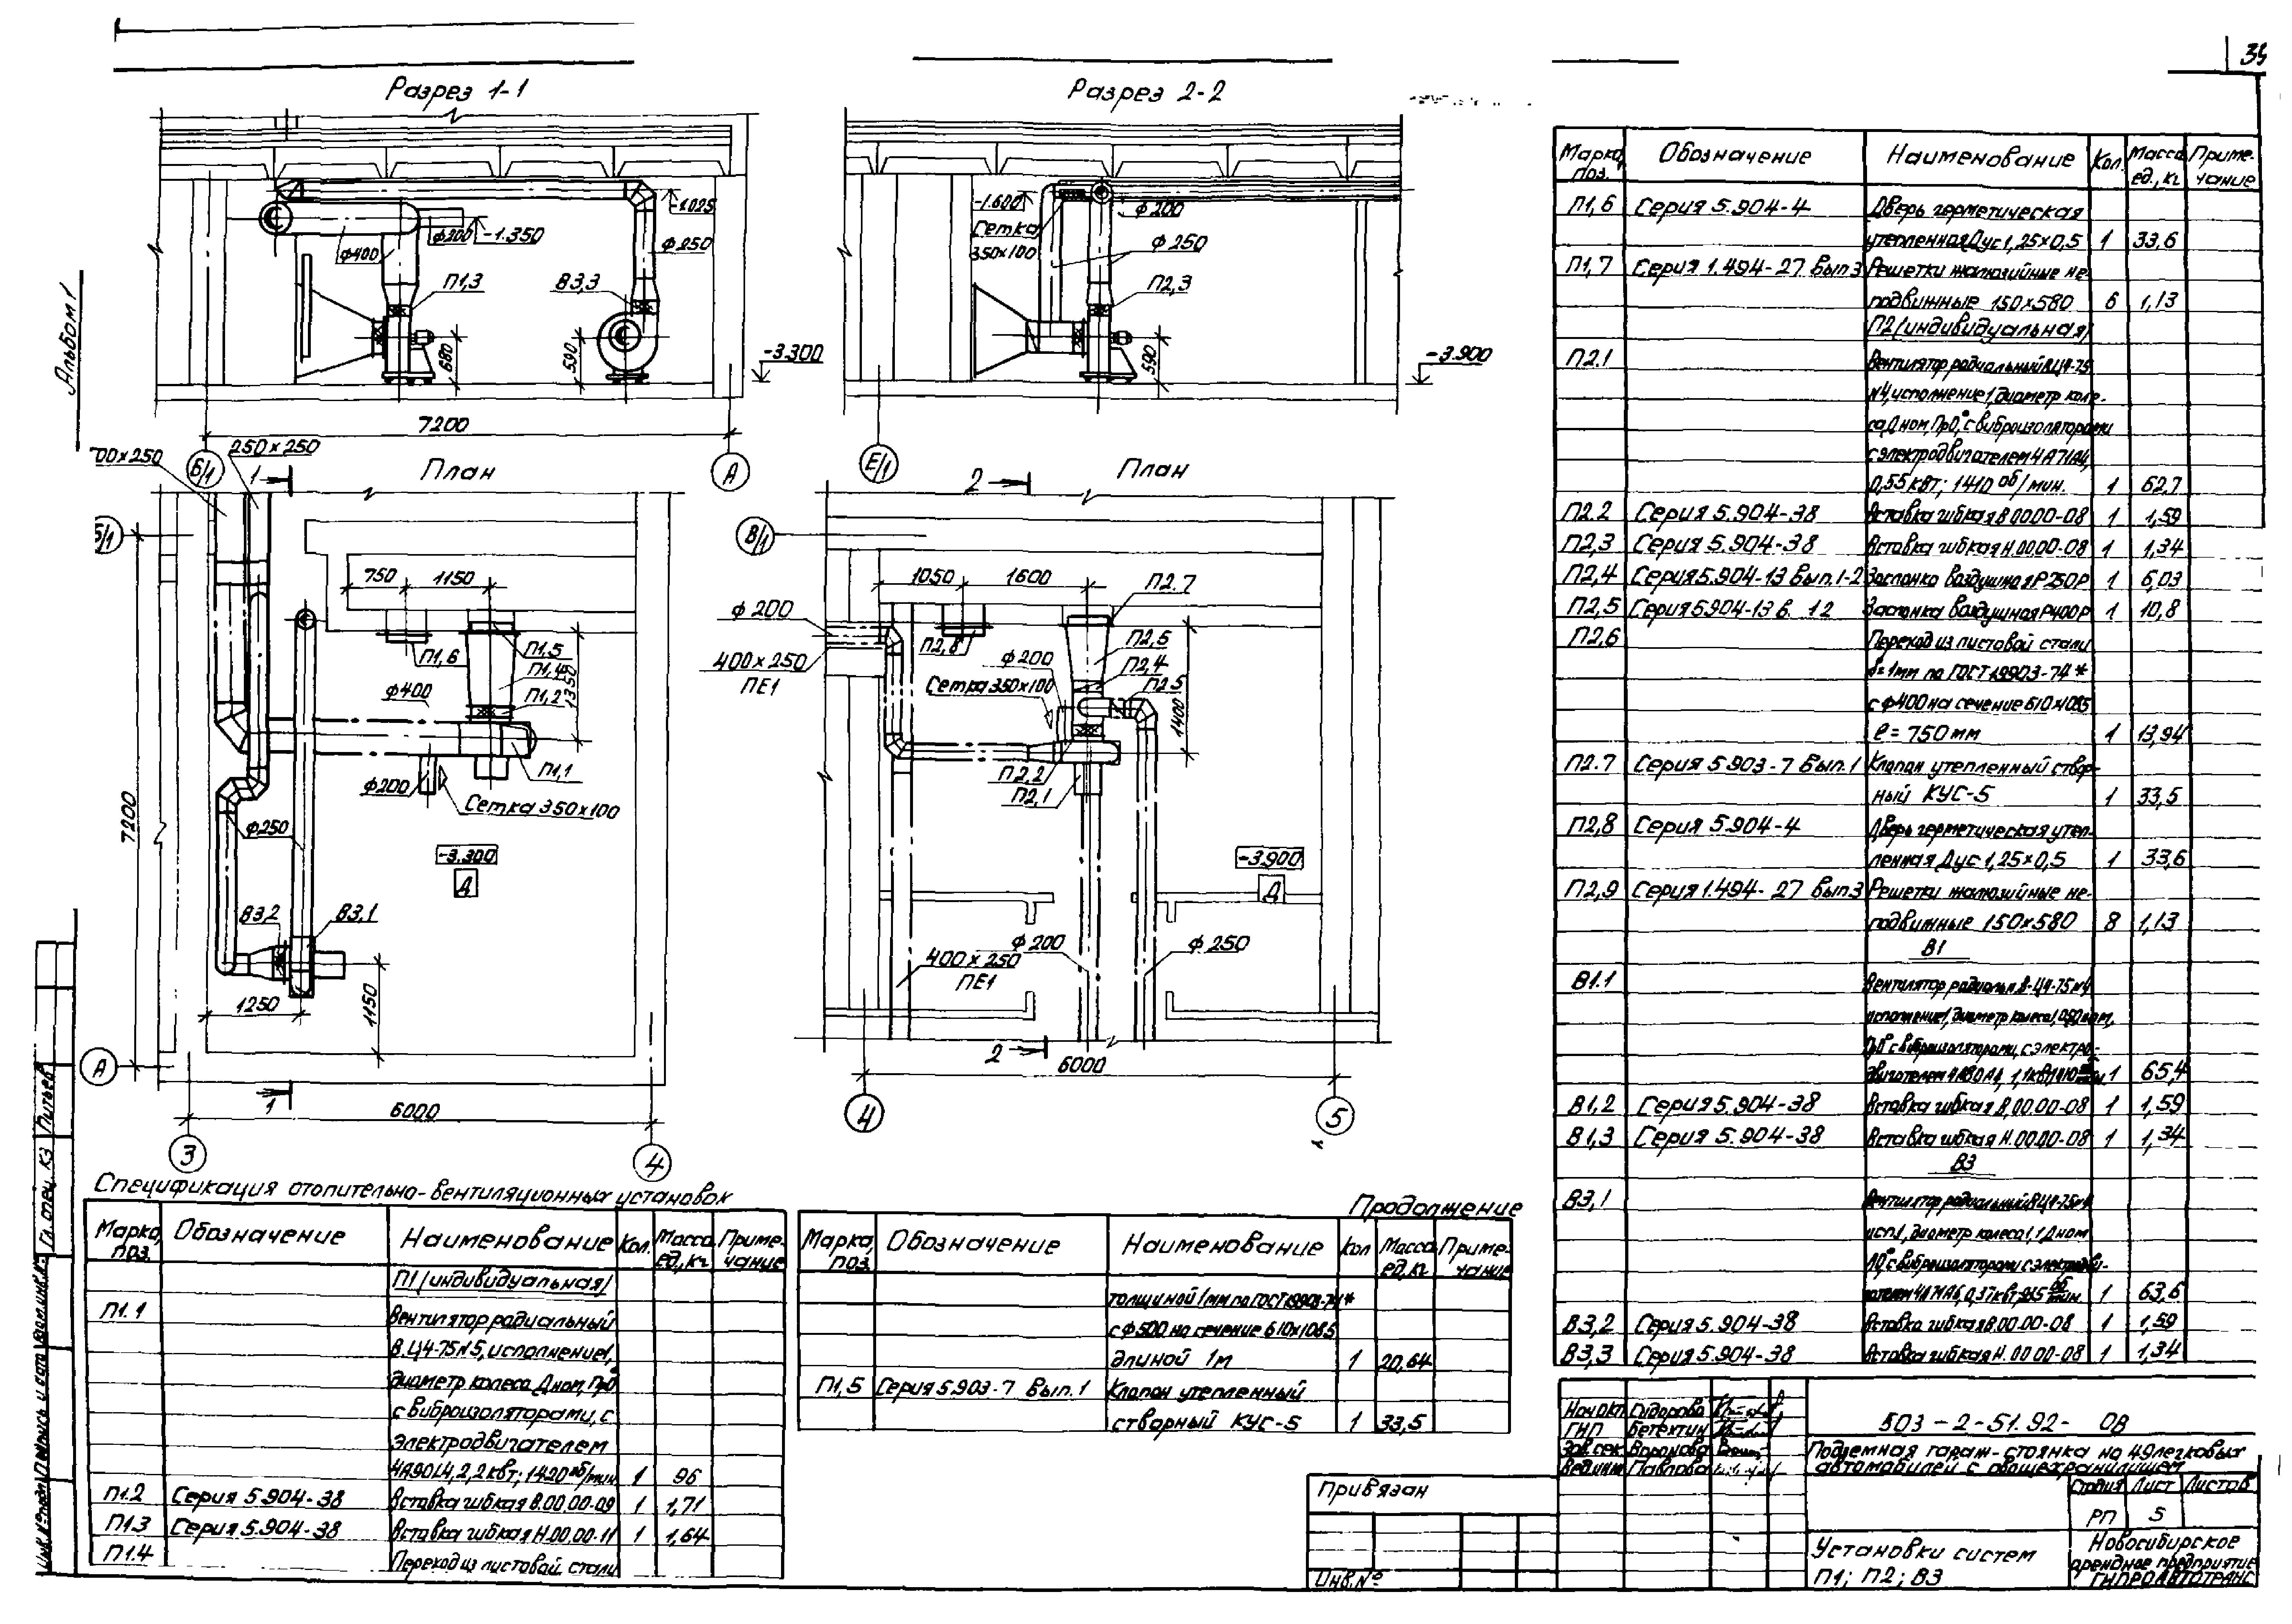 34
Альбом 1
Разрез 1-1
ф400
ф200
-1.350
-1.025
ф250
П1,3
В3,3
680
590
-3.300
7200
Б/1
А
Разрез 2-2
-1.600
Сетка
350х100
ф200
ф250
П2,3
590
-3.900
Е/1
План
250х250
1
750
1150
П1,6
П1,5
П1,4
П1,2
1350
ф400
ф200
П1,1
Сетка 350х100
ф250
7200
-3.300
Д
В3,2
В3,1
1250
1150
А
1
6000
3
4
План
2
В/1
1050
1600
П2.7
ф200
400х250
ПЕ1
П2,8
ф200
Сетка 350х100
П2,4
1400
П2.2
П2,1
-3.900
Д
ф200
ф250
400х250
ПЕ1
2
6000
4
5
Спецификация отопительно-вентиляционных установок
Марка, поз. Обозначение Наименование Кол. Масса ед., кг Приме-чание
П1 /индивидуальная/
П1.1 Вентилятор радиальный
В.Ц4-75 N5, исполнение1,
диаметр колеса Дном, Пр0°
с виброизоляторами, с
электродвигателем
4А90L4, 2,2 квт; 1420 об/мин 1 96
П1.2 Серия 5.904-38 Вставка гибкая В.00.00-09 1 1,71
П1.3 Серия 5.904-38 Вставка гибкая Н.00.00-11 1 1,64
П1.4 Переход из листовой стали
Продолжение
Марка, поз. Обозначение Наименование Кол Масса ед., кг Приме-чание
толщиной 1мм по ГОСТ 19903-74*
с ф500 на сечение 610х1085
длиной 1м 1 20,64
П1,5 Серия 5.903-7 Вып.1 Клапан утепленный
створный КУС-5 1 33,5
Марка, поз. Обозначение Наименование Кол. Масса ед., кг Приме-чание
П1,6 Серия 5.904-4 Дверь герметическая
утепленная Дус 1,25х0,5 1 33,6
П1,7 Серия 1.494-27 Вып3 Решетки жалюзийные не-
подвижные 150х580 6 1,13
П2 /индивидуальная/
П2.1 Вентилятор радиальный ВЦ4-75
N4, исполнение 1, диаметр коле-
са Дном, Пр0°, с виброизоляторами
с электродвигателем 4А71А4,
0,55 квт; 1410 об/мин. 1 62,7
П2.2 Серия 5.904-38 Вставка гибкая В.00.00-08 1 1,59
П2,3 Серия 5.904-38 Вставка гибкая Н.00.00-08 1 1,34
П2,4 Серия 5.904-13 Вып.1-2 Заслонка воздушная Р250Р 1 6,03
П2,5 Серия 5.904-13 в. 1-2 Заслонка воздушная Р400Р 1 10,8
П2,6 Переход из листовой стали
δ=1мм по ГОСТ 19903-74*
с ф400 на сечение 610х1085
ℓ = 750 мм 1 13,94
П2.7 Серия 5.903-7 Вып.1 Клапан утепленный створ-
ный КУС-5 1 33,5
П2,8 Серия 5.904-4 Дверь герметическая утеп-
ленная Дус 1,25х0,5 1 33,6
П2,9 Серия 1.494-27 Вып3 Решетки жалюзийные не-
подвижные 150х580 8 1,13
В1
В1.1 Вентилятор радиальн В-Ц4-75 N4
исполнение1, диаметр колеса
Пр0° с виброизоляторами, с электро-
двигателем 1 65,4
В1.2 Серия 5.904-38 Вставка гибкая В.00.00-08 1 1,59
В1,3 Серия 5.904-38 Вставка гибкая Н.00.00-08 1 1,34
В3
В3,1 Вентилятор радиальный ВЦ4-75 N4
исп1, диаметр колеса 1,1 Дном
Л0° с виброизоляторами с электродви-
гателем 0,37 квт 1 63,6
В3,2 Серия 5.904-38 Вставка гибкая В.00.00-08 1 1,59
В3,3 Серия 5.904-38 Вставка гибкая Н.00.00-08 1 1,34
Нач отд Сидорова
ГИП Бетехтин
Зав.сек Воронова
Вед.инж Павлова
503-2-51.92- ОВ
Подземная гараж-стоянка на 49 легковых
автомобилей с овощехранилищем
Стадия Лист Листов
РП 5
Установки систем
П1; П2; В3
Новосибирское
арендное предприятие
ГИПРОАВТОТРАНС
Привязан
Инв. №
Гл. спец. КЗ
Инв. № подл. Подпись и дата Взам.инв.№